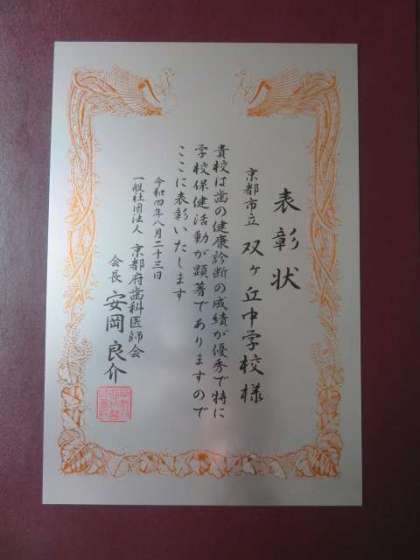 表彰状
京都市立 双ヶ丘中学校様
貴校は歯の健康診断の成績が優秀で特に
学校保健活動が顕著でありますので
ここに表彰いたします
令和四年八月二十三日
一般社団法人 京都府歯科医師会
会長 安岡良介